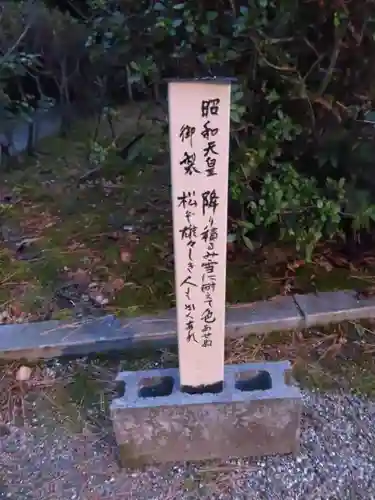 昭和天皇
御製
降り積るみ雪に耐えて色あせぬ
松ぞ雄々しき人もかくあれ